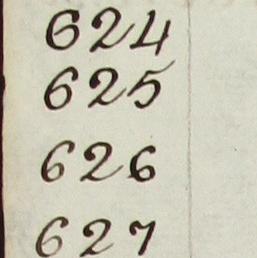 624
625
626
627